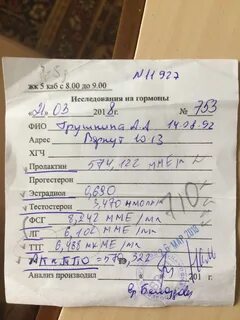 жк 5 каб с 8.00 до 9.00
№ 11927
Исследования на гормоны
«21» 03 2018 г. № 753
ФИО Грушкина А.А 14.01.92
Адрес 10-13
ХГЧ
Пролактин 574,122 ммЕ/мл
Прогестерон
Эстрадиол 6,680
Тестостерон 3,470 нмоль/л
ФСГ 8,242 ММЕ/мл
ЛГ 6,102 ММЕ/мл
ТТГ 6,488 мкМЕ/мл
Ат к ТПО = 578,322
МАР 2018
Анализ производил 201 г.